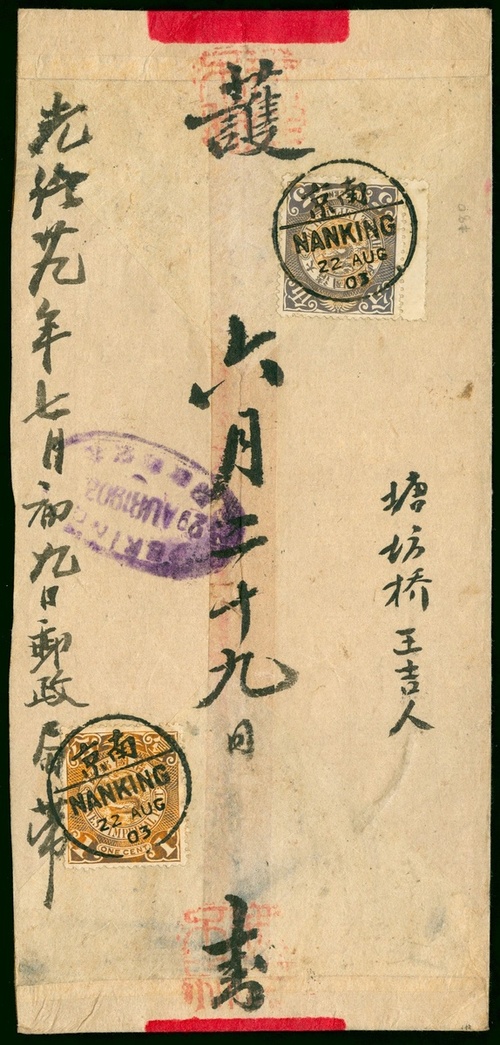 南京
NANKING
22 AUG
03
塘坊橋王吉人
護
六月二十九日
PEKING
29 AUG 1903
光緒廿九年七月初九日郵政局帶
南京
NANKING
22 AUG
03
ONE CENT